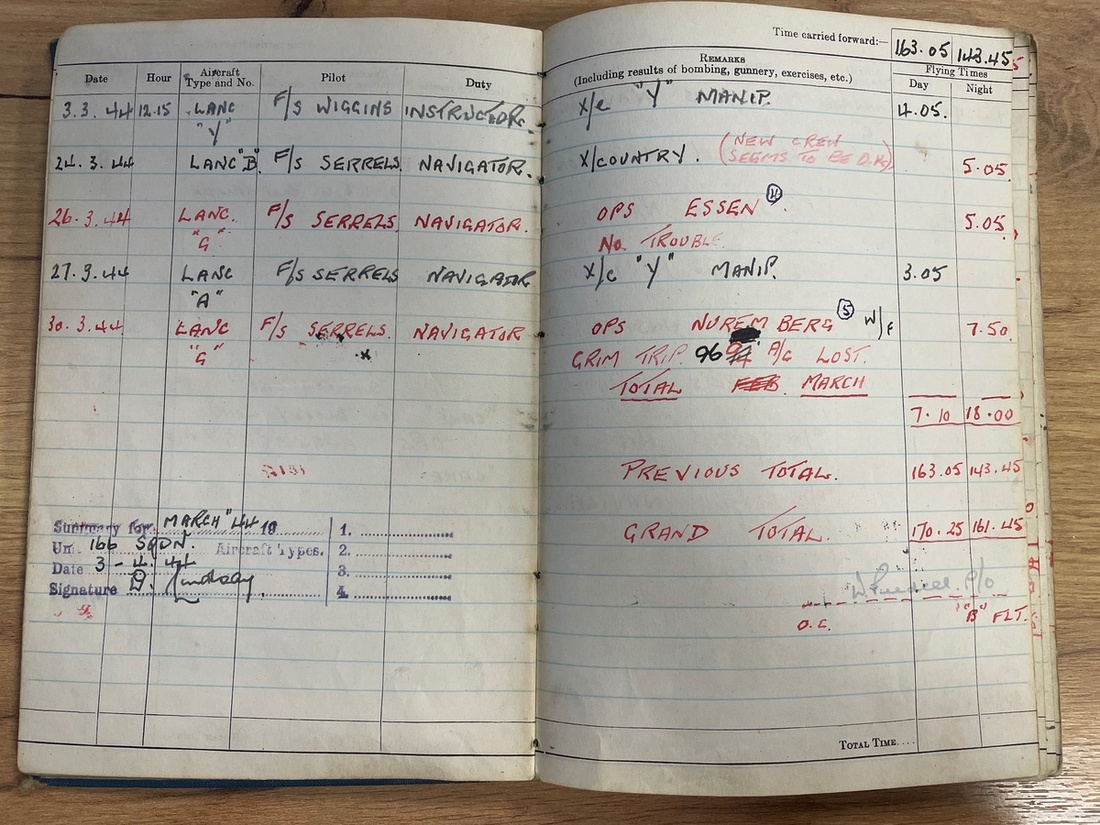 Time carried forward:— 163.05 143.45
Date Hour Aircraft Type and No. Pilot Duty REMARKS (Including results of bombing, gunnery, exercises, etc.) Flying Times Day Night
3.3.44 12.15 LANC "Y" F/S WIGGINS INSTRUCTOR X/C "Y" MANIP. 4.05.
24.3.44 LANC "B". F/S SERRELS. NAVIGATOR. X/COUNTRY. (NEW CREW SEEMS TO BE D.K.) 5.05.
26.3.44 LANC. "G" F/S SERRELS. NAVIGATOR. OPS ESSEN (4). 5.05.
NO. TROUBLE.
27.3.44 LANC "A" F/S SERRELS NAVIGATOR X/C "Y" MANIP. 3.05
30.3.44 LANC "G" F/S SERRELS. NAVIGATOR OPS NUREMBERG (5) W/F 7.50.
GRIM TRIP. 96 94 A/C LOST.
TOTAL FEB. MARCH
7.10 18.00
PREVIOUS TOTAL. 163.05 143.45
GRAND TOTAL. 170.25 161.45
Summary for MARCH "44 19 1.
Unit 166 SQDN. Aircraft Types. 2.
Date 3-4-44 3.
Signature D. Lindsay. 4.
P/O
O.C. "B" FLT.
TOTAL TIME....